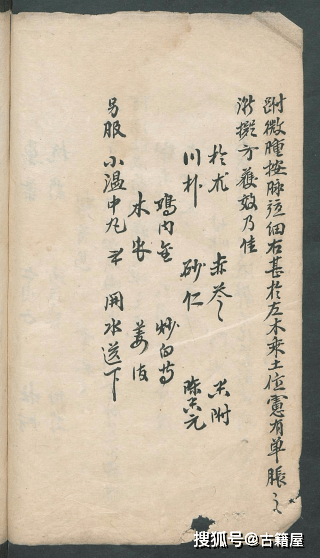 跗微腫按脉弦細右甚於左木乘土位慮有单脹之
漸擬方獲效乃佳
於朮 赤苓 香附
川朴 砂仁 陳香元
鴻内金 炒白芍
木 姜皮
另服 小温中丸 開水送下
搜狐号@古籍屋